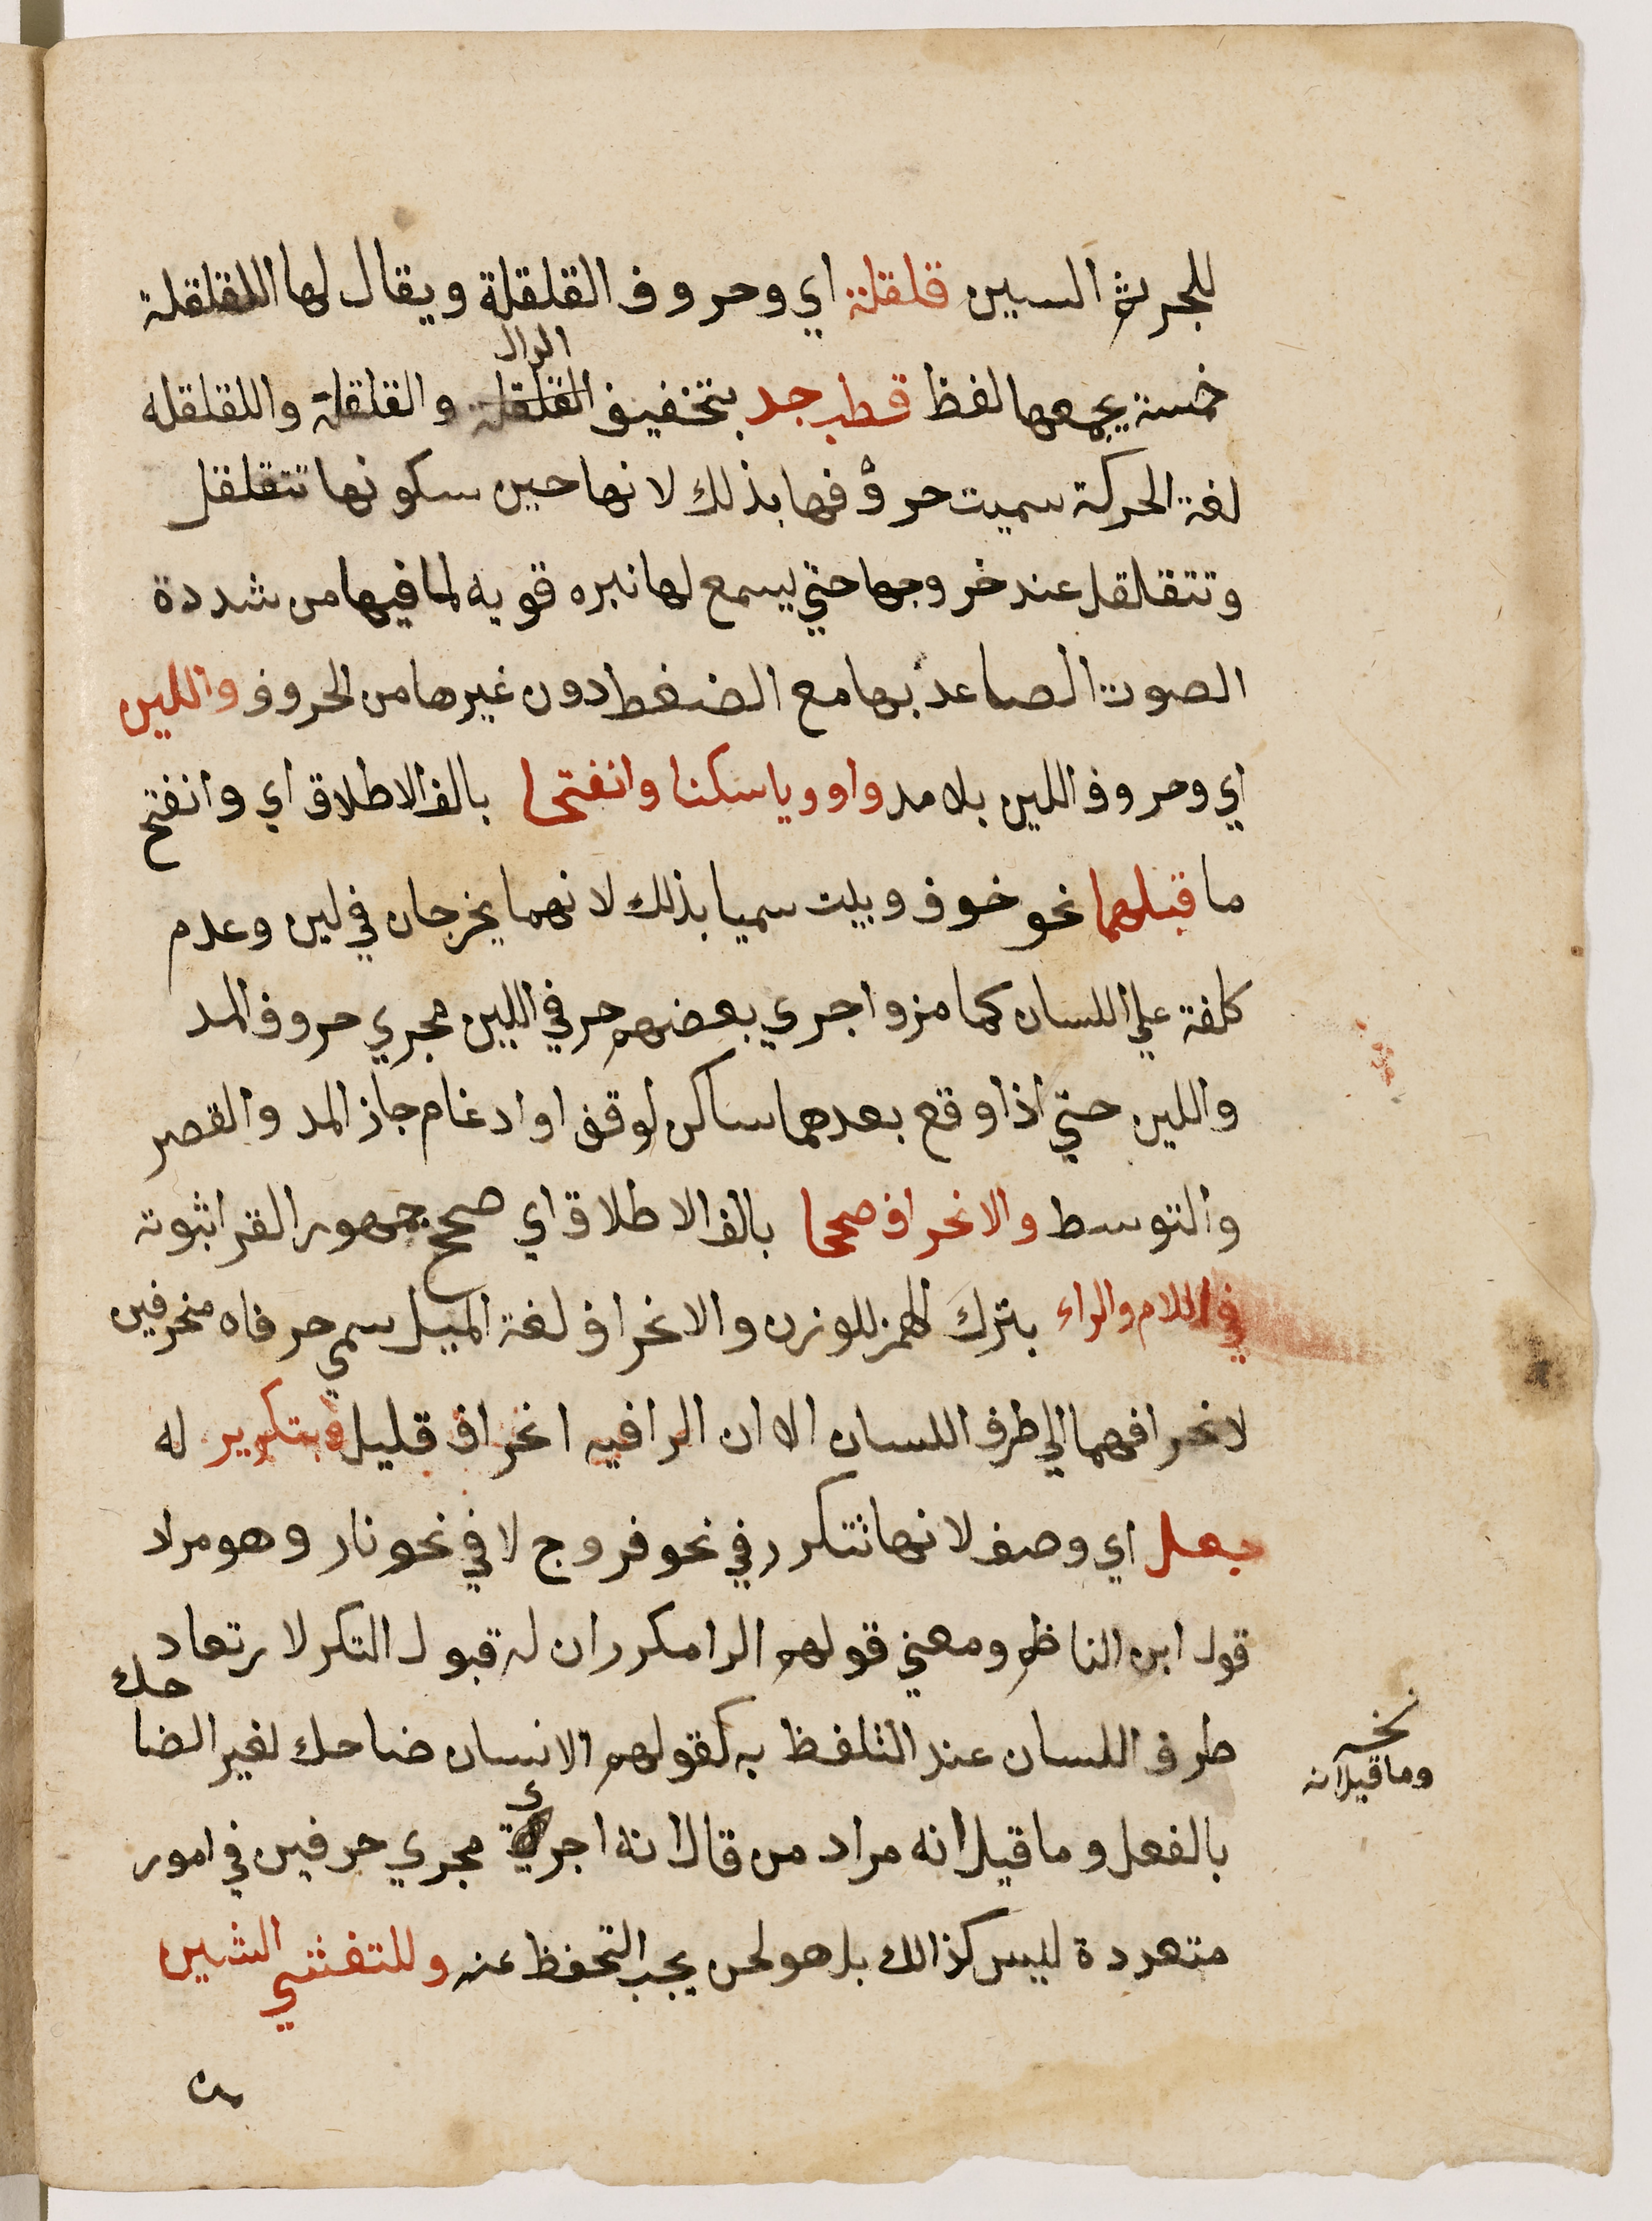 للجر ثم السين قلقلة اي وحروف القلقلة ويقال لها اللقلقلة
خمسة يجمعها لفظ قطب جد بتخفيف القلقلة والقلقلة واللقلقله
الدال
لغة الحركة سميت حروفها بذلك لانها حين سكونها تتقلقل
وتتقلقل عند خروجها حتي يسمع لها نبره قويه لما فيها من شددة
الصوت الصاعد بها مع الضغط دون غيرها من الحروف واللين
اي وحروف اللين بلا مد واو ويا سكنا وانفتحا بالف الاطلاق اي وانفتح
ما قبلهما نحو خوف وبيت سميا بذلك لانهما يخرجان في لين وعدم
كلفة علي اللسان كما مر واجري بعضهم حرفي اللين مجري حروف المد
واللين حتي اذا وقع بعدهما ساكن لوقف او ادغام جاز المد والقصر
والتوسط والانحراف صححا بالف الاطلاق اي صحح جمهور القرا ثبوته
في اللام والراء بترك الهمز للوزن والانحراف لغة الميل سمي حرفاه منحرفين
لانحرافهما الي طرف اللسان الا ان الرا فيه انحراف قليل وبتكرير له
جعل اي وصف لانها تتكرر في نحو فروج لا في نحو نار وهو مراد
قول ابن الناظم ومعني قولهم الرا مكرر ان له قبول التكر لارتعاد
طرف اللسان عند التلفظ به كقولهم الانسان ضاحك لغير الضا
حك
بالفعل وما قيل انه مراد من قال انه اجري مجري حرفين في امور
متعددة ليس كذالك بل هو لحن يجب التحفظ عنه وللتفشي الشين
نخـ
وما قيل انه